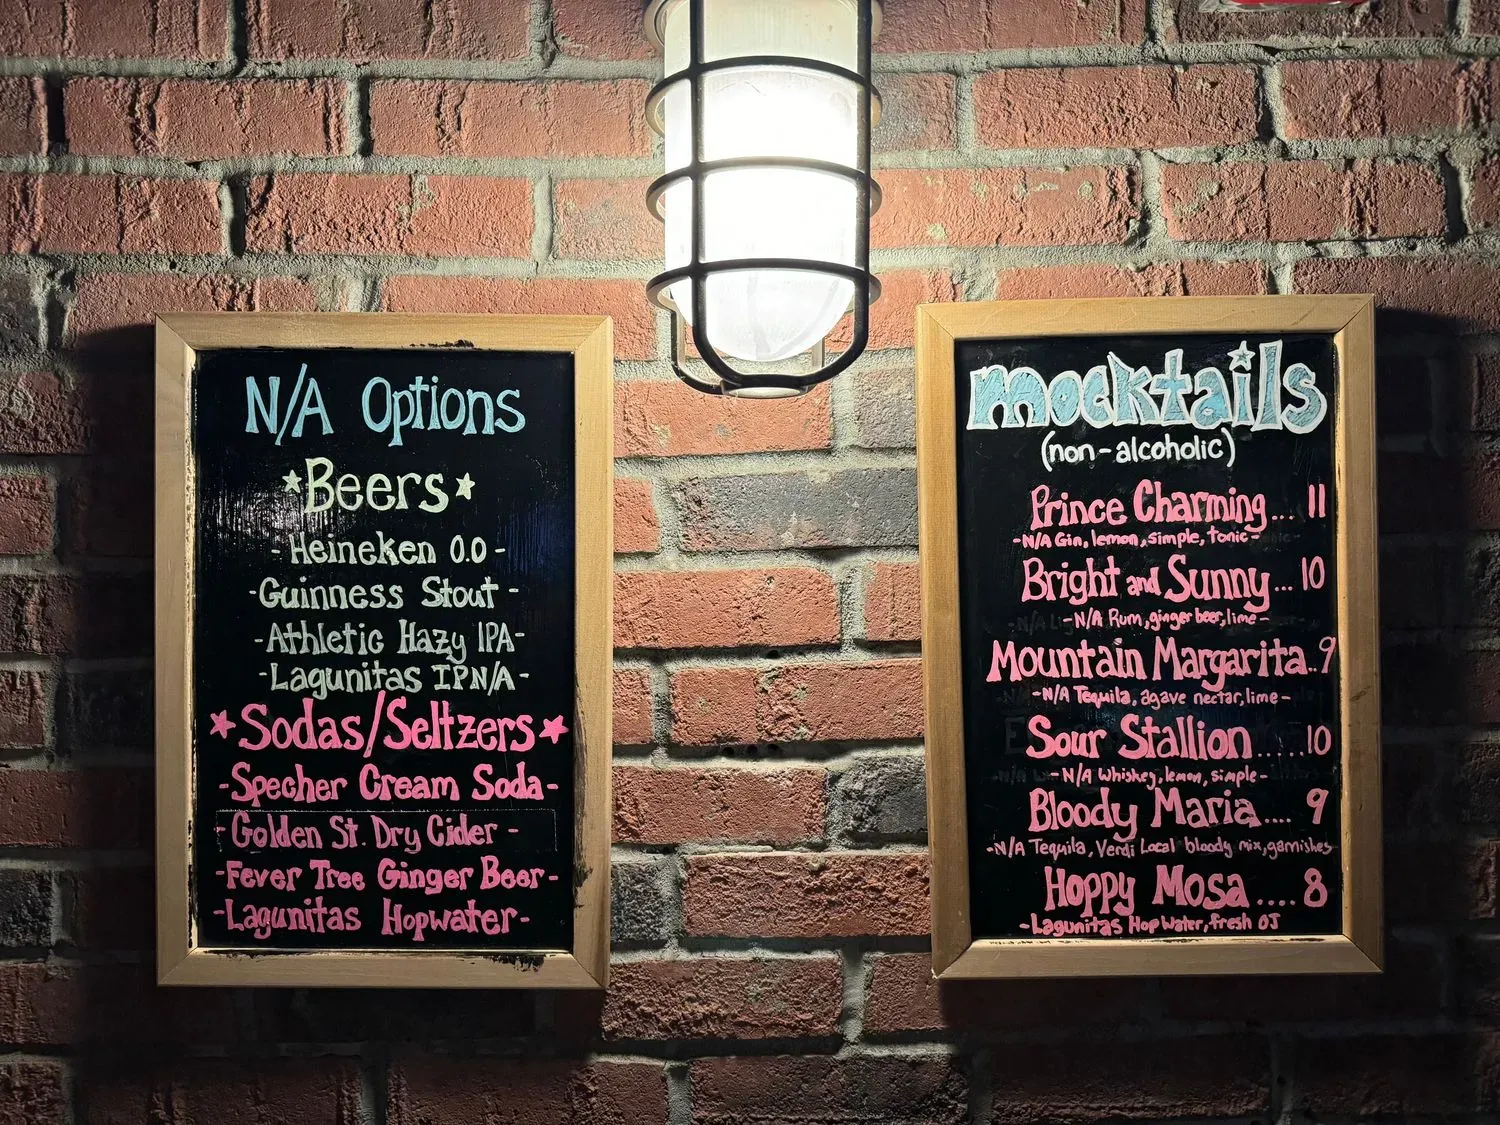 N/A Options
*Beers*
-Heineken 0.0-
-Guinness Stout-
-Athletic Hazy IPA-
-Lagunitas IPN/A-
*Sodas/Seltzers*
-Specher Cream Soda-
-Golden St. Dry Cider-
-Fever Tree Ginger Beer-
-Lagunitas Hopwater-
mocktails
(non-alcoholic)
Prince Charming... 11
-N/A Gin, lemon, simple, tonic-
Bright and Sunny... 10
-N/A Rum, ginger beer, lime-
Mountain Margarita.. 9
-N/A Tequila, agave nectar, lime-
Sour Stallion......10
-N/A Whiskey, lemon, simple-
Bloody Maria.... 9
-N/A Tequila, Verdi Local bloody mix, garnishes
Hoppy Mosa.... 8
-Lagunitas Hop Water, fresh OJ